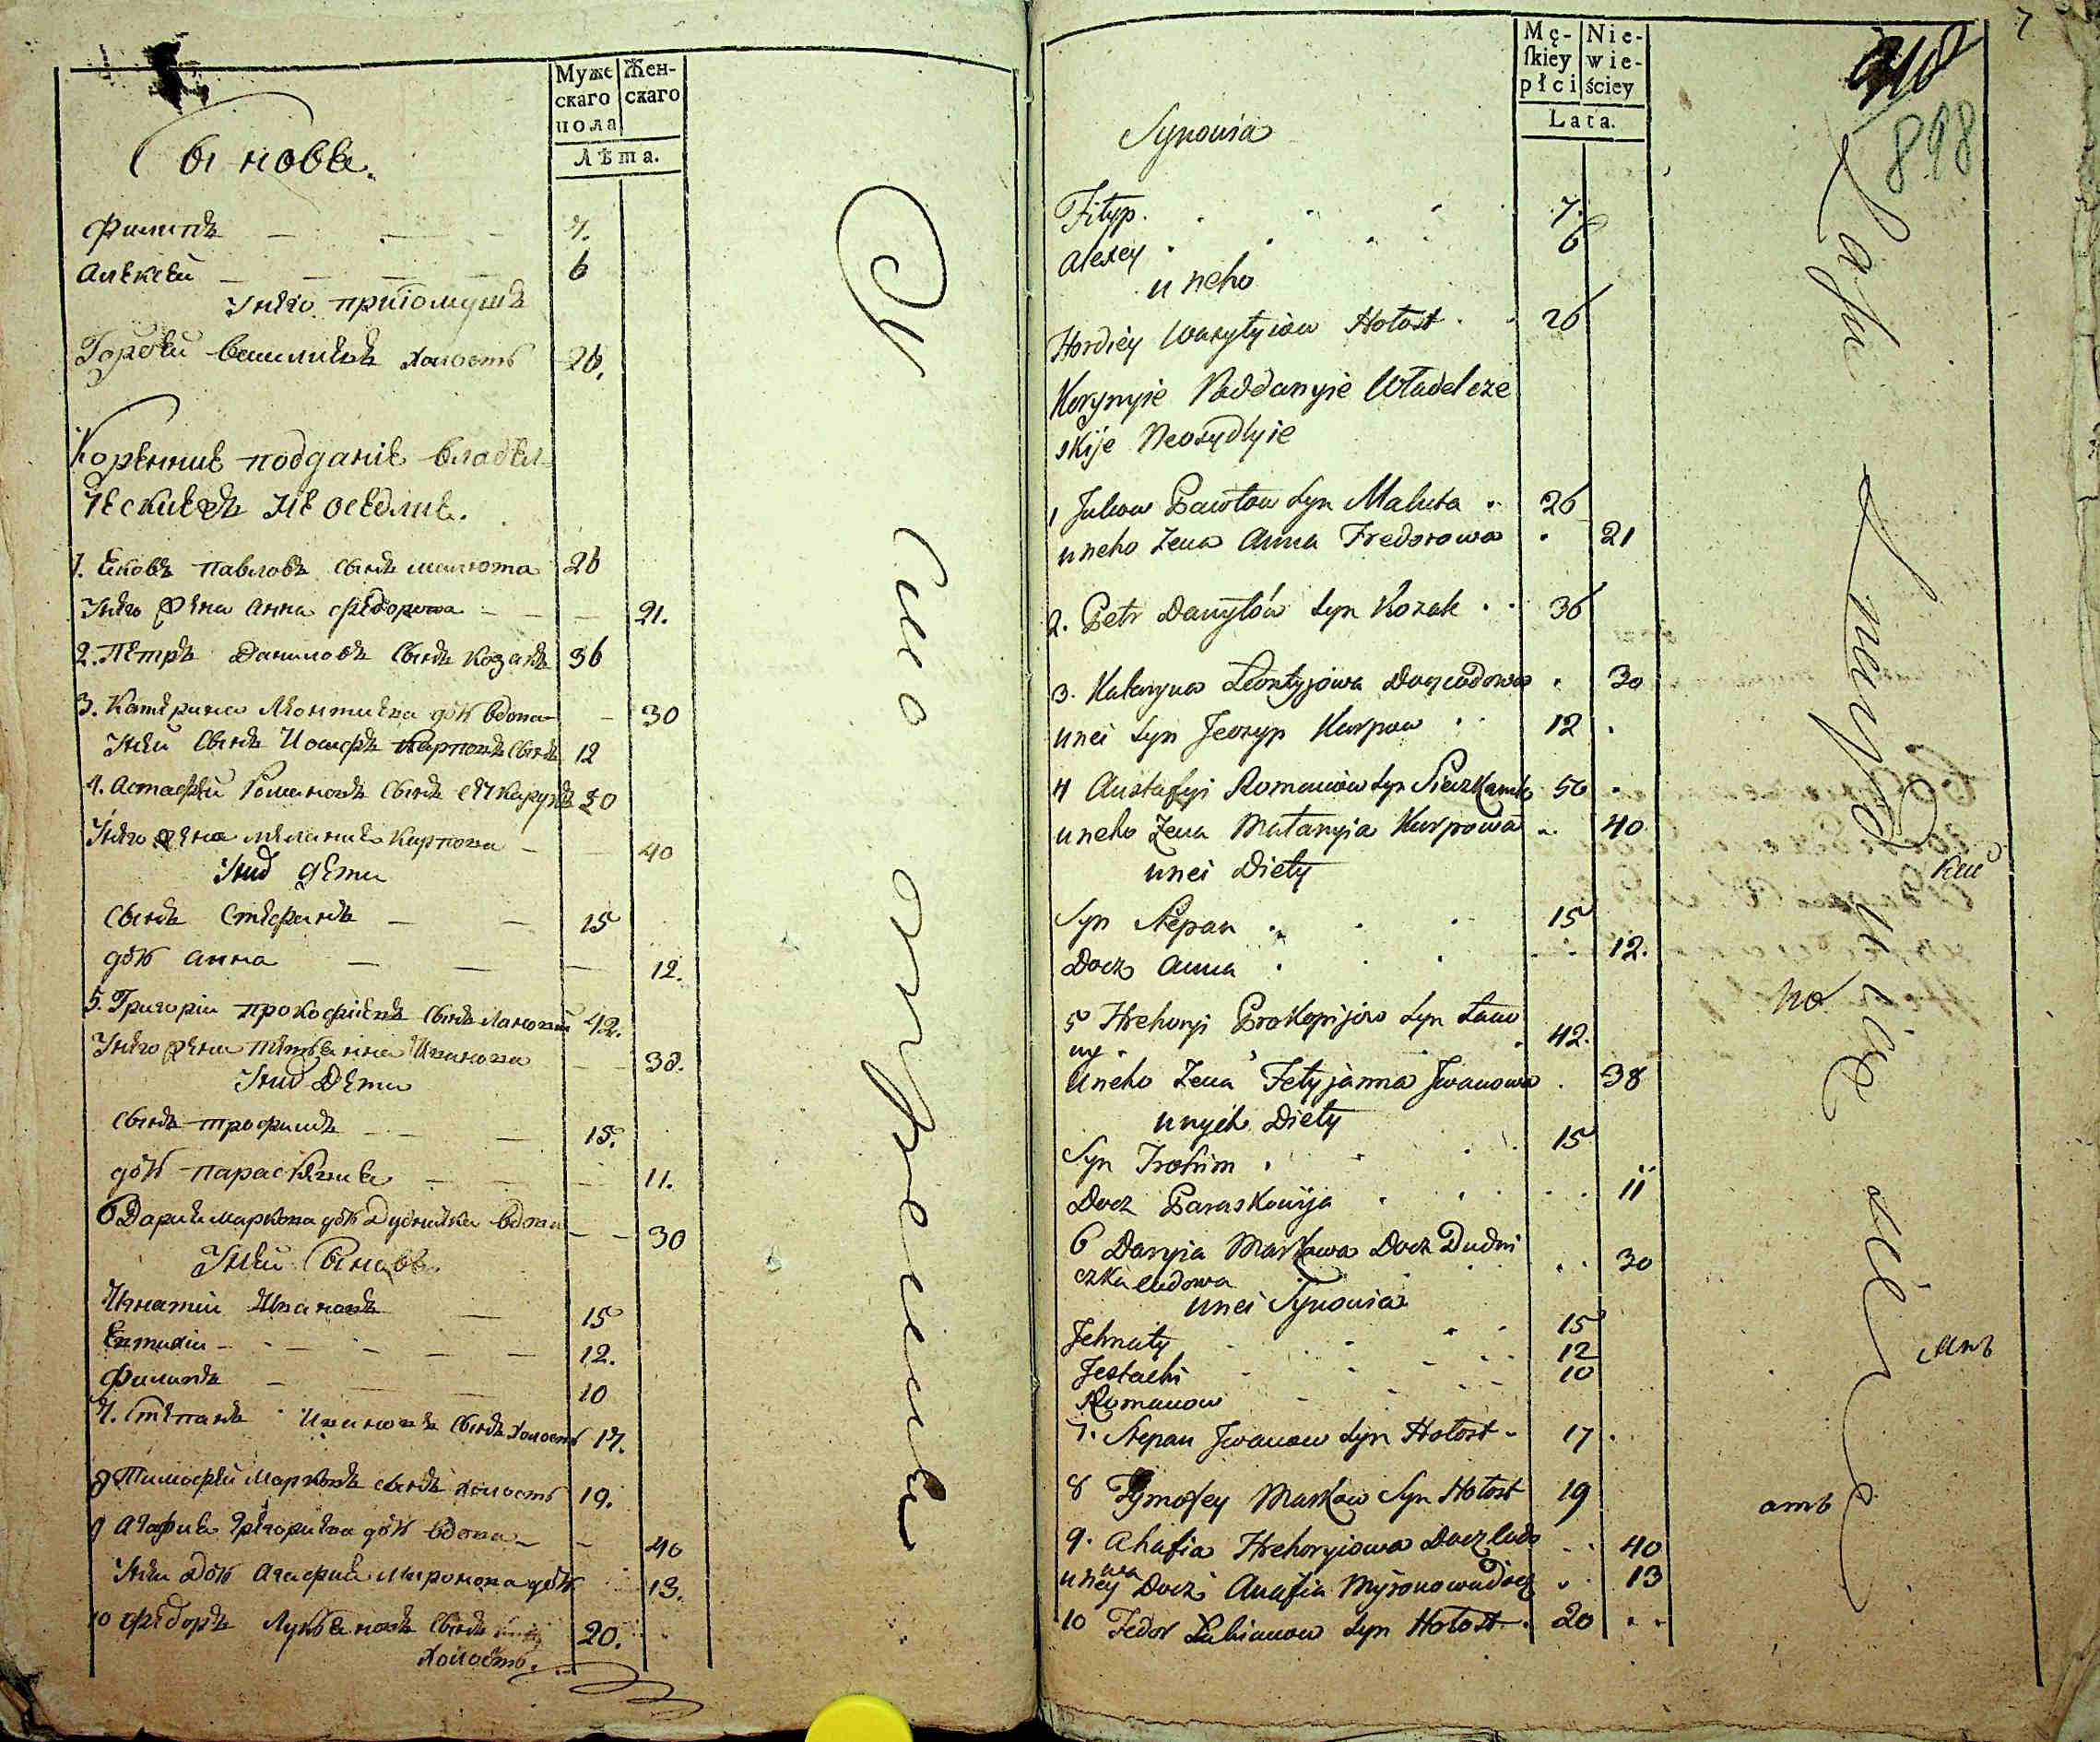 Муже
скаго
пола
Жен-
скаго
Лѣта.
Сыновѣ.
Филипъ 7.
Алексѣй 6
Унего
Гордѣй Василиевъ холостъ 26.
Коренние подданіе владѣл
ческие неоседлие.
1. Яковъ Павловъ сынъ Малюта 26
Унего жена Анна Федорова 21.
2. Петръ Даниловъ сынъ Козакъ 36
3. Катерина Леонтиева дочъ вдова 30
Унеи сынъ Иосифъ Карповъ сынъ 12
4. Астафѣй Романовъ сынъ 50
Унего жена Мелания Карпова 40
Уних дети
сынъ Стефанъ 15
дочъ Анна 12.
5. Григорій Прокофиевъ сынъ Лановий 42.
Унего жена Татьянна Иванова 38.
Уних дети
сынъ Трофимъ 15.
дочъ Параскевия 11.
6 Дария Маркова дочъ Дудничка вдова 30
Унеи сыновѣ
Игнатий Ивановъ 15
Евтихій 12.
Филипъ 10
7. Степанъ Ивановъ сынъ холостъ 17.
8 Тимофѣй Марковъ сынъ холостъ 19.
9 Агафия Григориева дочъ вдова 40
Унеи дочъ Агафия Миронова дочъ 13.
10 Федоръ Лукьяновъ сынъ
холостъ. 20.
К сио
Mę-
ſkiey
płci
Nie-
wie-
ściey
Lata.
7
898
Synowia
Filyp 7.
Alexey 6
u neho
Hordiey Wasylyiow Hołost 26
Korynyie Poddanyie Władelcze
skije Neosydlyie
1 Jakow Pawłow syn Maluta 26
uneho Zena Anna Fredorowa 21
2. Petr Danyłów syn Kozak 36
3. Kataryna Leontyjowa Docz wdowa 30
unei syn Jeozyp Karpow 12
4 Austafyi Romanów syn 50
uneho Zena Małanyia Karpowa 40
unei Diety
Syn Stepan 15
Docz Anna 12.
5 Hrehoryi Prokopijow syn Łano
wy 42.
Uneho Zena Tetyjanna Jwanowa 38
unych Diety
Syn Trohim 15
Docz Paraskowija 11
6 Daryia Markowa Docz Dudni
czka wdowa 30
unei Synowia
Jehnaty 15
Jestachi 12
Romanow 10
7. Stepan Jwanow syn Hołost 17
8 Tymofey Markow Syn Hołost 19
9. Ahafia Hrehoryiowa Docz wdo
wa 40
uney Docz Anafia Myronowa Docz 13
10 Fedor Lukianow syn Hołost 20
но